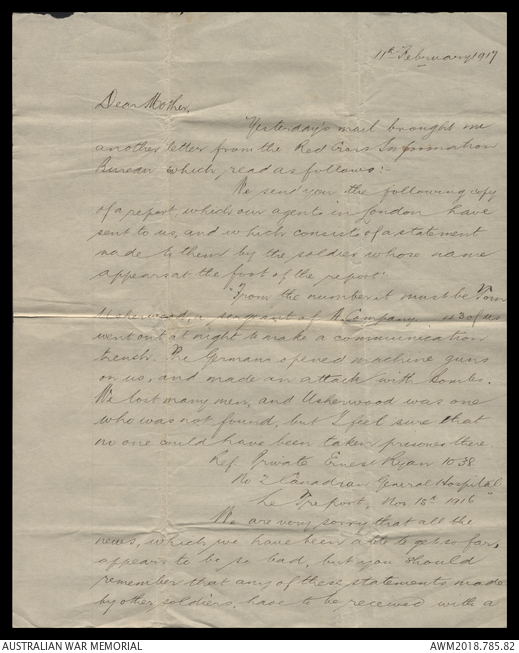 11th February 1917
Dear Mother,
Yesterday's mail brought me
another letter from the Red Cross Information
Bureau which, read as follows:-
We send you the following copy
of a report, which our agents in London have
sent to us, and which consists of a statement
made to them by the soldier whose name
appears at the foot of the report"
"From the number it must be Tom
Usherwood, a sergeant of A. Company. of us
went out at night to make a communication
trench. The Germans opened machine guns
on us, and made an attack with bombs.
We lost many men, and Usherwood was one
who was not found, but I feel sure that
no one could have been taken prisoner there.
Ref. Private Ernest Ryan 1038
No 2 Canadian General Hospital
Le Treport, Nov 18th 1916"
We are very sorry that all the
news, which, we have been able to get so far,
appears to be so bad, but you should
remember that any of these statements made
by other soldiers, have to be received with a
AUSTRALIAN WAR MEMORIAL
AWM2018.785.82